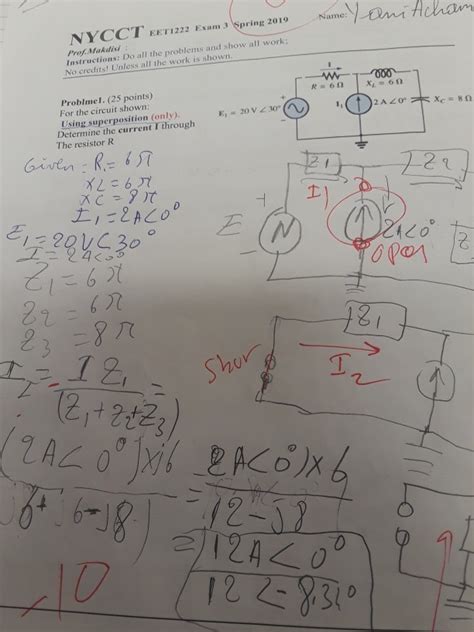 NYCCT EET1222 Exam 3 Spring 2019
Name: Yani Acham
Prof.Makdisi :
Instructions: Do all the problems and show all work;
No credits! Unless all the work is shown.
Problme1. (25 points)
For the circuit shown:
Using superposition (only).
Determine the current I through
The resistor R
I
R = 6 Ω
X_L = 6 Ω
E₁ = 20 V ∠ 30°
I₁
2 A ∠ 0°
X_C = 8 Ω
Given: R = 6 Ω
XL = 6 Ω
XC = 8 Ω
I₁ = 2A<0°
E₁ = 20V < 30°
I = 2A<0°
Z₁ = 6 Ω
Z2 = 6 Ω
Z3 = 8 Ω
Z1
Z2
I1
+
E
N
-
2A<0°
open
Z
Z1
Shor
I2
I2 = - I Z1 / (Z1 + Z2 + Z3) =
(2A < 0°) x j6
j6 + j6 - j8
= (2A<0°) x 6
12 - j8
= 12A<0°
12 < -8.310
-10